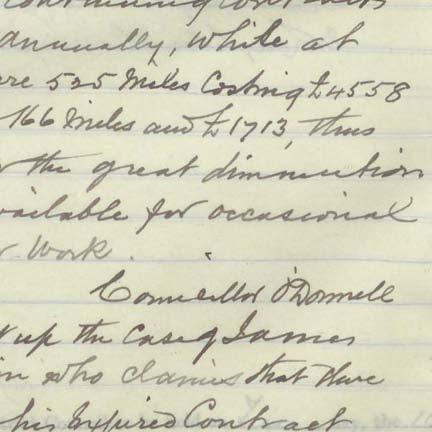 continuing contracts
annually, while at
re 525 Miles Costing £4558
166 Miles and £1713, thus
the great diminution
vailable for occasional
r work.
Councillor O'Donnell
up the case of James
in who claims that there
his Expired Contract